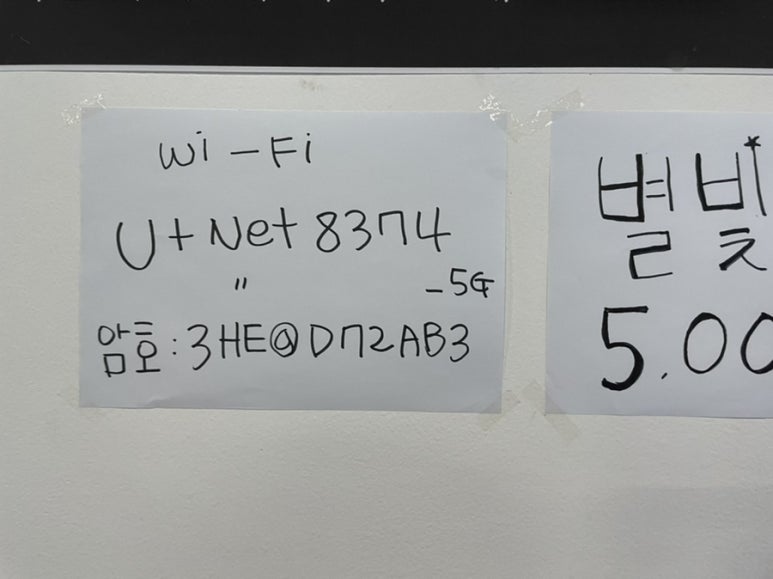 Wi-Fi
U+Net8374
〃 -5G
암호:3HE@D72AB3
별빛
5.00